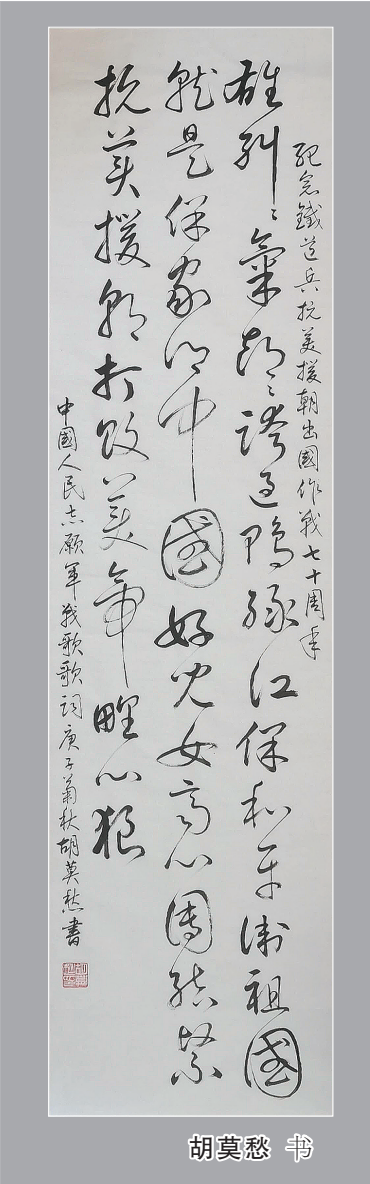 紀念鐵道兵抗美援朝出國作戰七十周年
雄糾〻氣昂〻跨過鴨綠江保和平衛祖國
就是保家鄉中國好兒女齊心團結緊
抗美援朝打敗美帝野心狼
中國人民志願軍戰歌歌詞庚子菊秋胡莫愁書
胡莫愁 书